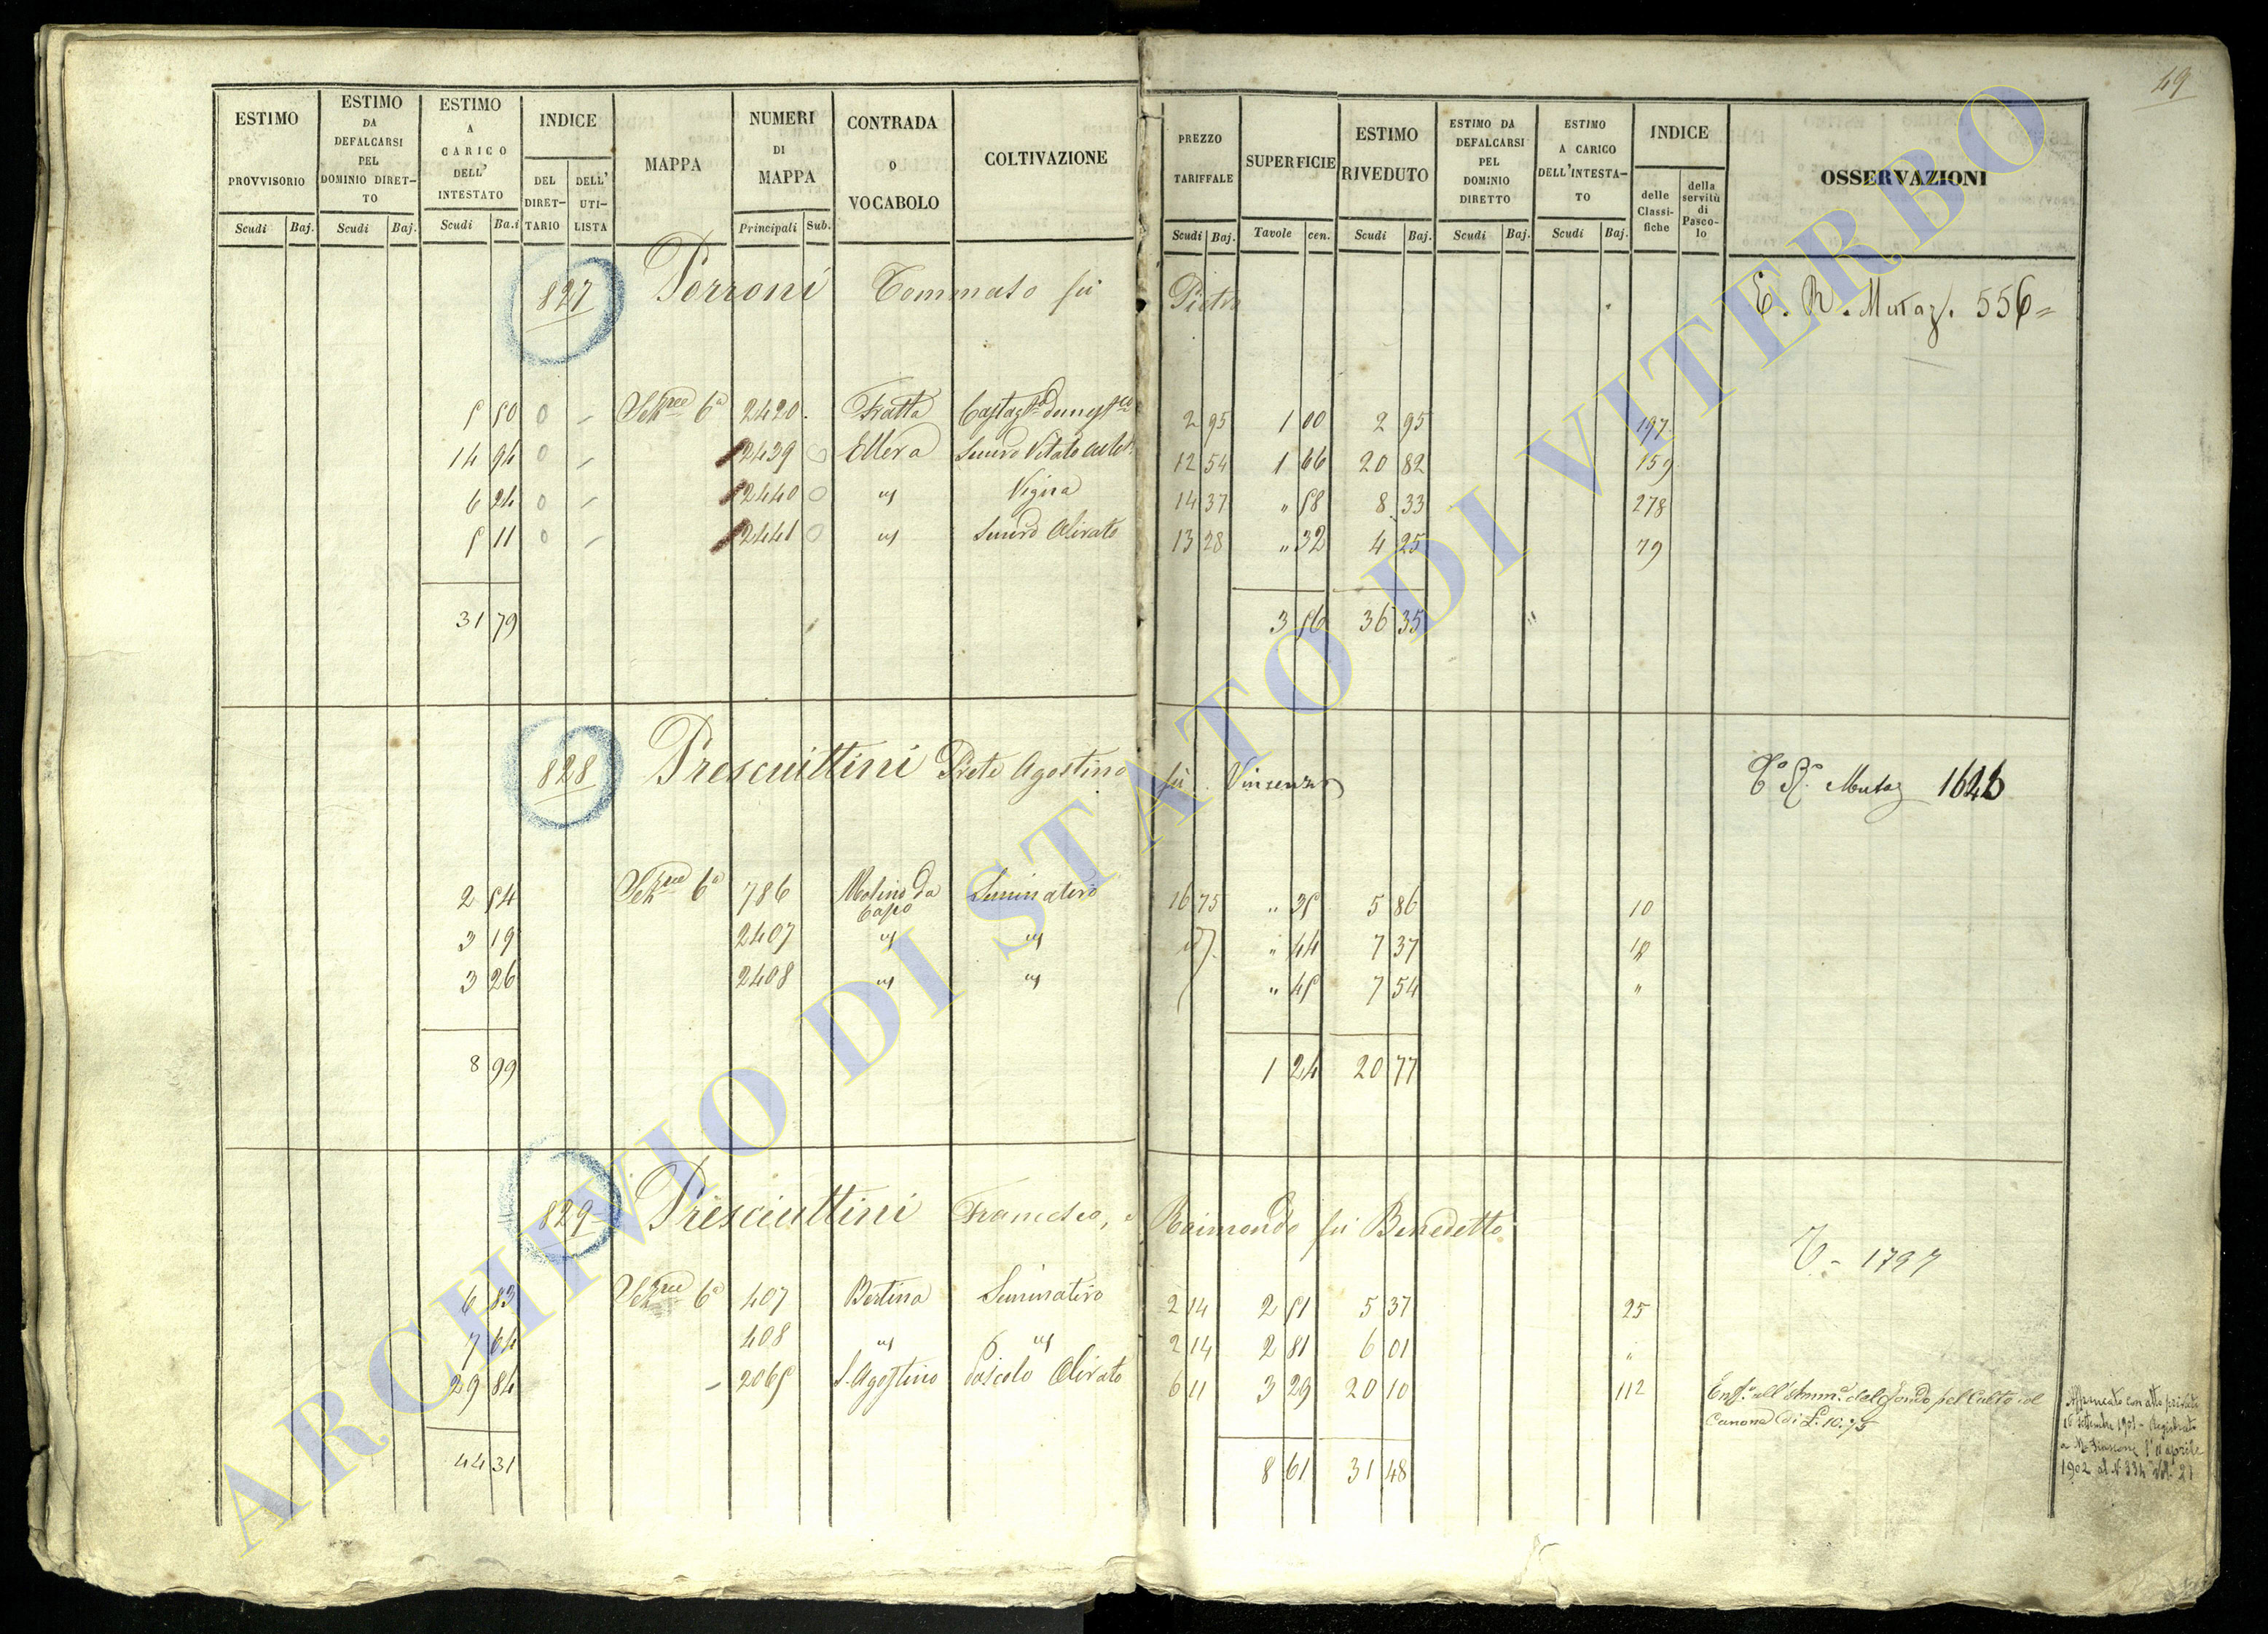 49
ESTIMO PROVVISORIO
ESTIMO DA DEFALCARSI PEL DOMINIO DIRET-TO
ESTIMO A CARICO DELL' INTESTATO
INDICE
DEL DIRET-TARIO
DELL' UTI-LISTA
MAPPA
NUMERI DI MAPPA
CONTRADA O VOCABOLO
COLTIVAZIONE
PREZZO TARIFFALE
SUPERFICIE
ESTIMO RIVEDUTO
ESTIMO DA DEFALCARSI PEL DOMINIO DIRETTO
ESTIMO A CARICO DELL'INTESTA-TO
INDICE
delle Classi-fiche
della servitù di Pasco-lo
OSSERVAZIONI
Scudi Baj. Scudi Baj. Scudi Ba.i Principali Sub. Scudi Baj. Tavole cen. Scudi Baj. Scudi Baj. Scudi Baj.
827 Porroni Tommaso fu Pietro E. R. Mutaz. 556=
5 50 0 6a 2420. Fratta 2 95 1 00 2 95 197
14 94 0 2439 0 Ellera 12 54 1 66 20 82 159
6 24 0 2440 0 " Vigna 14 37 " 58 8 33 278
5 11 0 2441 0 " Olivato 13 28 " 32 4 25 79
31 79 3 56 36 35 "
828 Presciuttini Prete Agostino fu Vincenzo Mutaz 1646
2 54 6a 786 Molino da Capo Seminativo 16 75 " 35 5 86 10
3 19 2407 " " " 44 7 37 18
3 26 2408 " " " 45 7 54 "
8 99 1 24 20 77
829 Presciuttini Francesco, e Raimondo fu Benedetto 1797
6 83 6a 407 Bertina Seminativo 2 14 2 51 5 37 25
7 64 408 " " 2 14 2 81 6 01 "
29 84 2065 S. Agostino Pascolo Olivato 6 11 3 29 20 10 112 Enf. all'Amm.e del fondo pel Culto col
Canone di L. 10.75
Affrancato con atto privato
16 Settembre 1901 - Registrato
a M. Fiascone l'11 aprile
1902 al N. 334 Vol. 21
44 31 8 61 31 48
ARCHIVIO DI STATO DI VITERBO